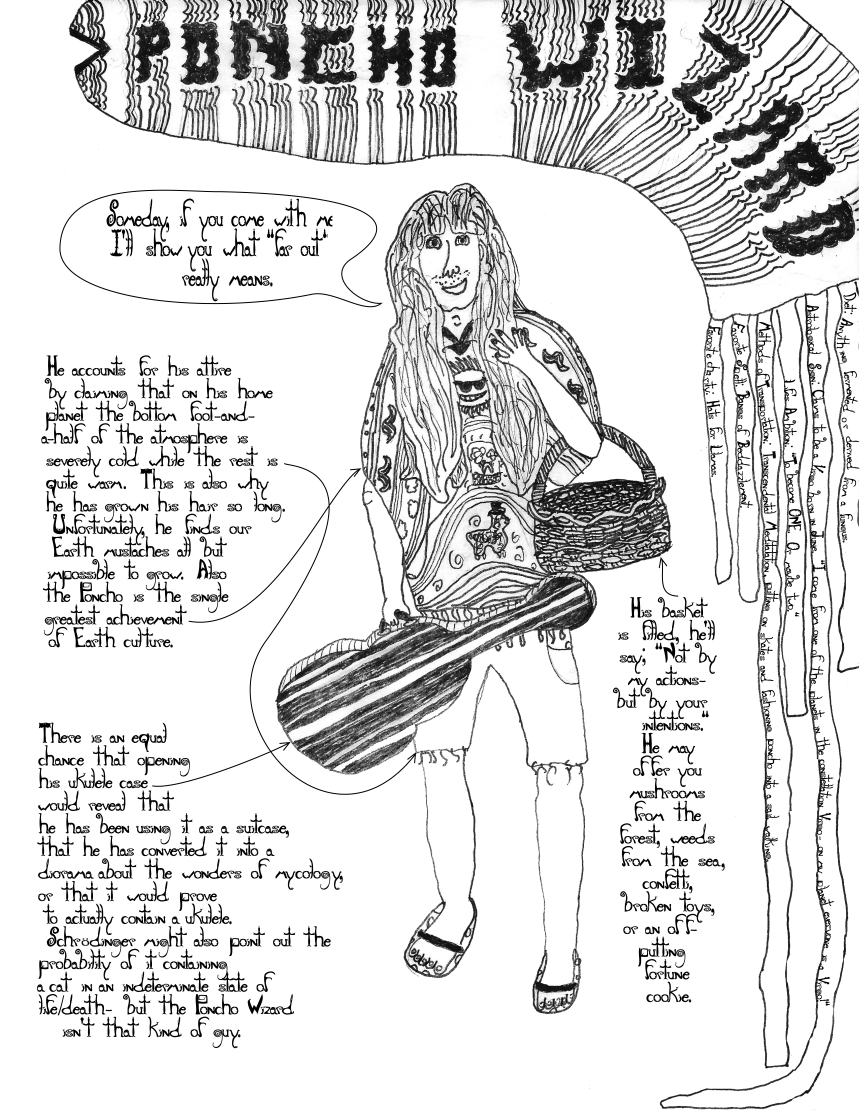 PONCHO WIZARD
Someday, if you come with me
I'll show you what "far out"
really means.
He accounts for his attire
by claiming that on his home
planet the bottom foot-and-
a-half of the atmosphere is
severely cold while the rest is
quite warm. This is also why
he has grown his hair so long.
Unfortunately, he finds our
Earth mustaches all but
impossible to grow. Also
the Poncho is the single
greatest achievement
of Earth culture.
There is an equal
chance that opening
his ukulele case
would reveal that
he has been using it as a suitcase,
that he has converted it into a
diorama about the wonders of mycology,
or that it would prove
to actually contain a ukulele.
Schrödinger might also point out the
probability of it containing
a cat in an indeterminate state of
life/death- but the Poncho Wizard
isn't that kind of guy.
His basket
is filled, he'll
say; "Not by
my actions-
but by your
intentions."
He may
offer you
mushrooms
from the
forest, weeds
from the sea,
confetti,
broken toys,
or an off-
putting
fortune
cookie.
Favorite charity: Hats for Llamas
Favorite Spell: Bones of Bedazzlement
Methods of Transportation: Transcendental Meditation, putting on skates and fashioning poncho into a sail, walking
Life's Ambition: "To become ONE. Or maybe two."
Astrological Sign: Claims to be a Virgo born in June. "I come from one of the planets in the constellation Virgo- on my planet everyone is a Virgo!"
Diet: Anything fermented or derived from a fungus